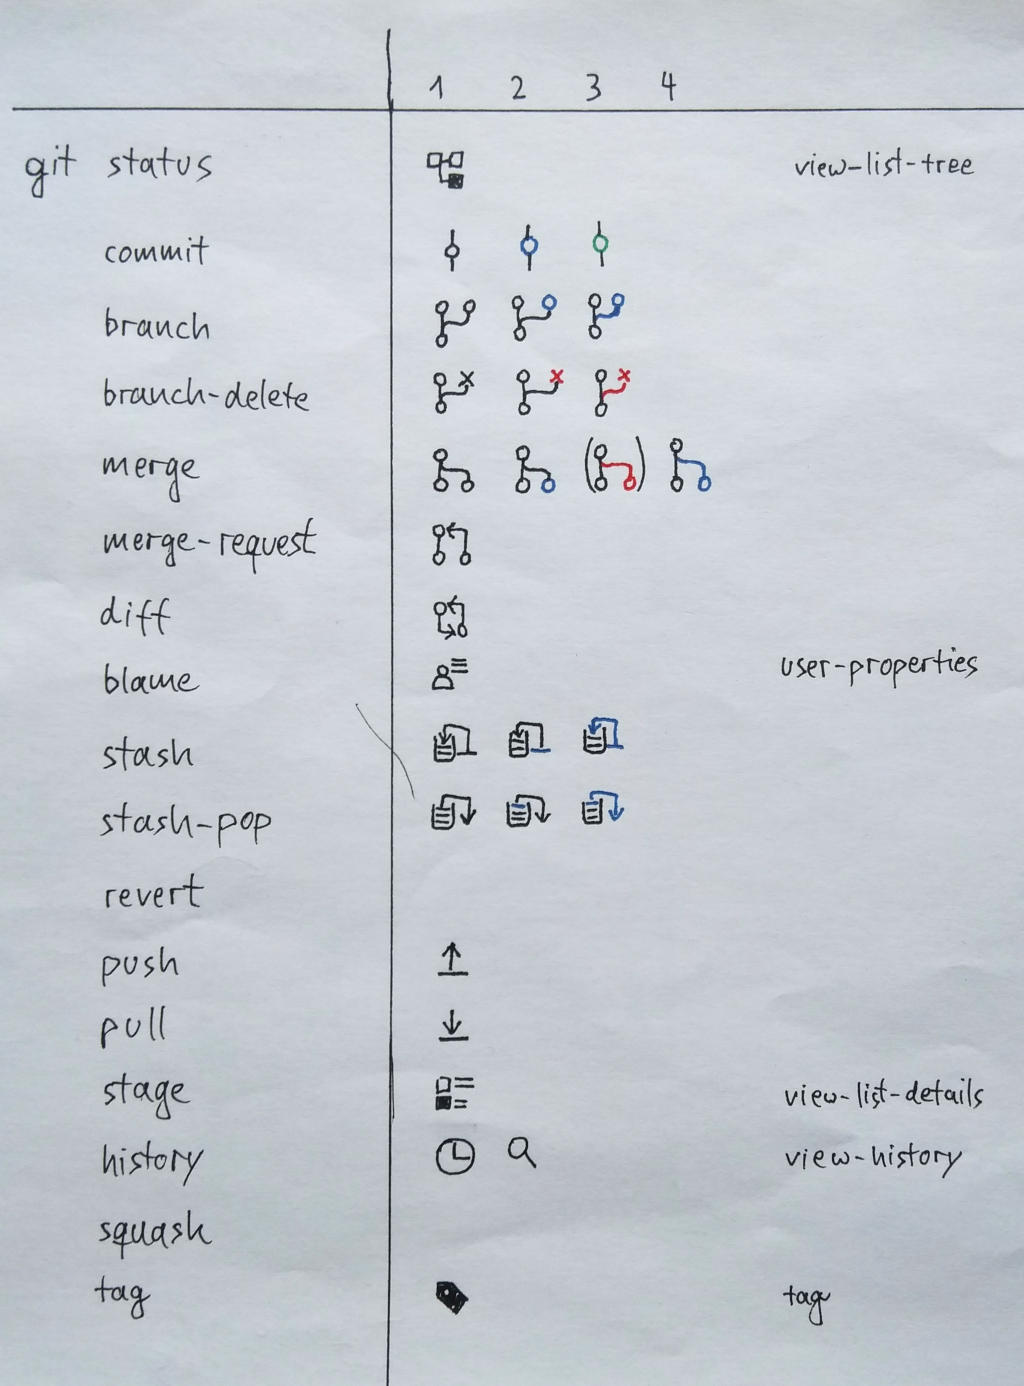 1 2 3 4
git status view-list-tree
commit
branch
branch-delete
merge
merge-request
diff
blame user-properties
stash
stash-pop
revert
push
pull
stage view-list-details
history view-history
squash
tag tag